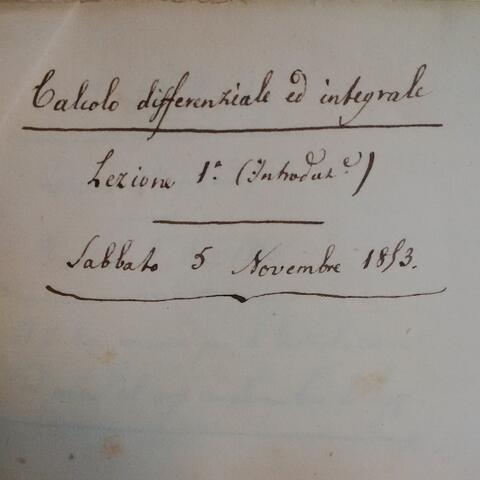 Calcolo differenziale ed integrale
Lezione 1.ª (Introduz.e)
Sabbato 5 Novembre 1853.